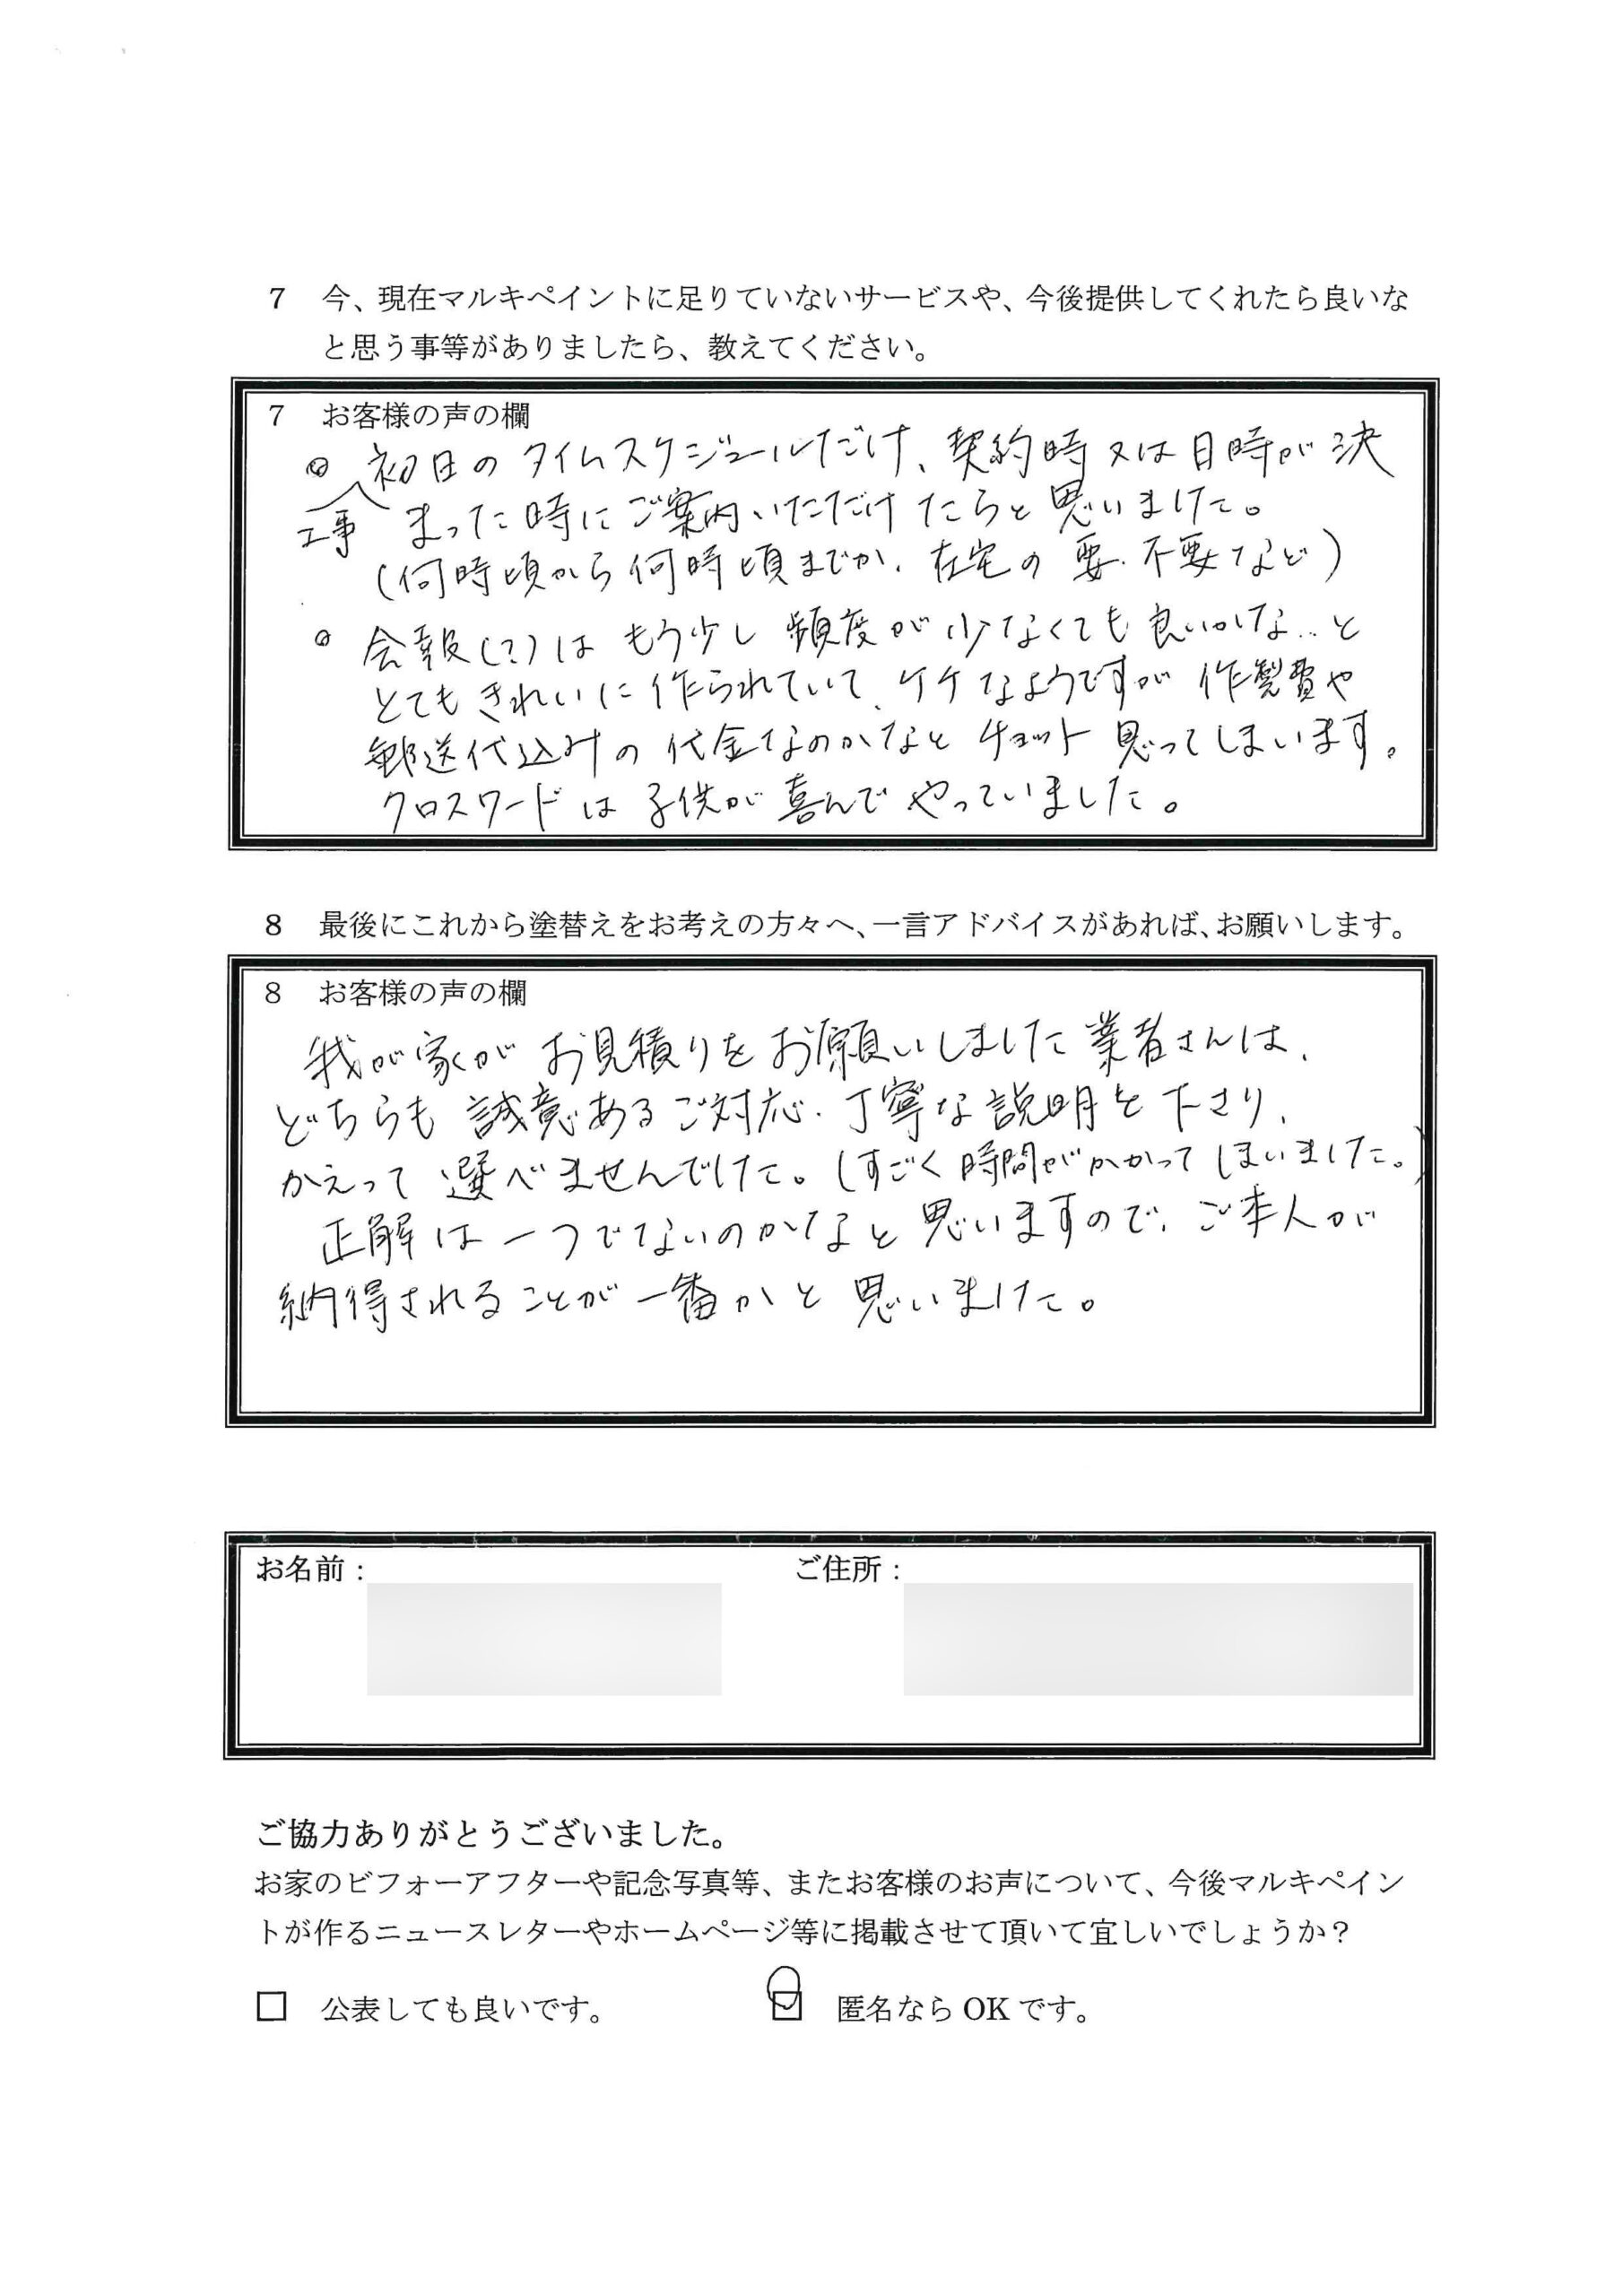 7 今、現在マルキペイントに足りていないサービスや、今後提供してくれたら良いな
と思う事等がありましたら、教えてください。
7 お客様の声の欄
◎ 初日のタイムスケジュールだけ、契約時又は日時が決
工事 まった時にご案内いただけたらと思いました。
(何時頃から何時頃までか、在宅の要・不要など)
◎ 会報(?)はもう少し頻度が少なくても良いかな…と
とてもきれいに作られていて、ケチなようですが作製費や
郵送代込みの代金なのかなとチョット思ってしまいます。
クロスワードは子供が喜んでやっていました。
8 最後にこれから塗替えをお考えの方々へ、一言アドバイスがあれば、お願いします。
8 お客様の声の欄
我が家がお見積りをお願いしました業者さんは、
どちらも誠意あるご対応・丁寧な説明を下さり、
かえって選べませんでした。(すごく時間がかかってしまいました。)
正解は一つでないのかなと思いますので、ご本人が
納得されることが一番かと思いました。
お名前: ご住所:
ご協力ありがとうございました。
お家のビフォーアフターや記念写真等、またお客様のお声について、今後マルキペイン
トが作るニュースレターやホームページ等に掲載させて頂いて宜しいでしょうか?
□ 公表しても良いです。 □ 匿名なら OK です。